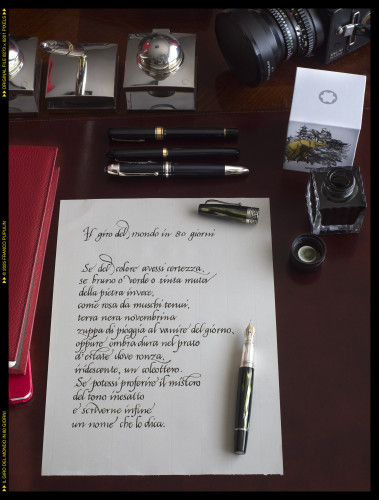 Il giro del mondo in 80 giorni
Se del colore avessi certezza,
se bruno o verde o tinta muta
della pietra invece,
come rosa da muschi tenui,
terra nera novembrina
zuppa di pioggia al venire del giorno,
oppure ombra dura nel prato
d'estate dove ronza,
iridescente, un coleottero.
Se potessi proferire il mistero
del tono inesatto
e scriverne infine
un nome che lo dica.
ORIGINAL FILE PIXELS
© 2025 FRANCO PUPULIN
IL GIRO DEL MONDO IN 80 GIORNI